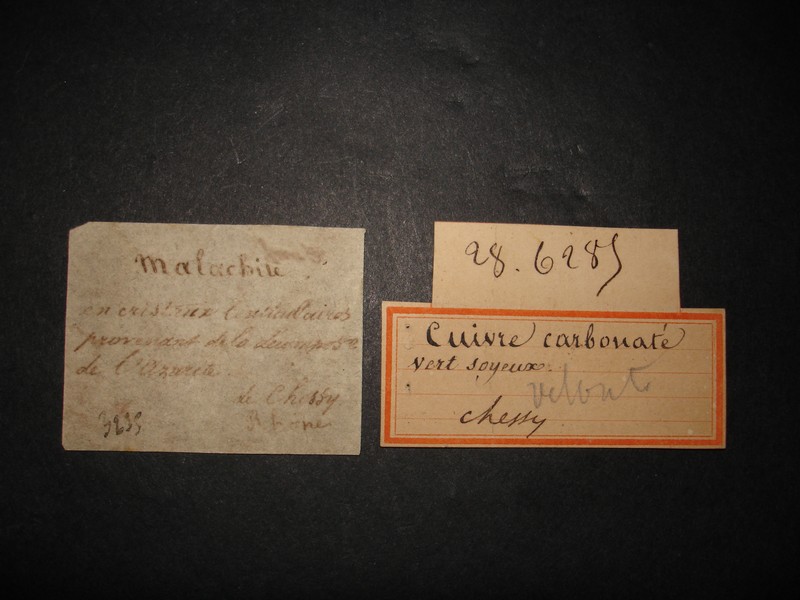 Malachite
en cristaux lenticulaires
provenant de la décompos.on
de l'Azurite.
de Chessy
Rhône
3235
28.6285
Cuivre carbonaté
vert soyeux.
velouté
chessy